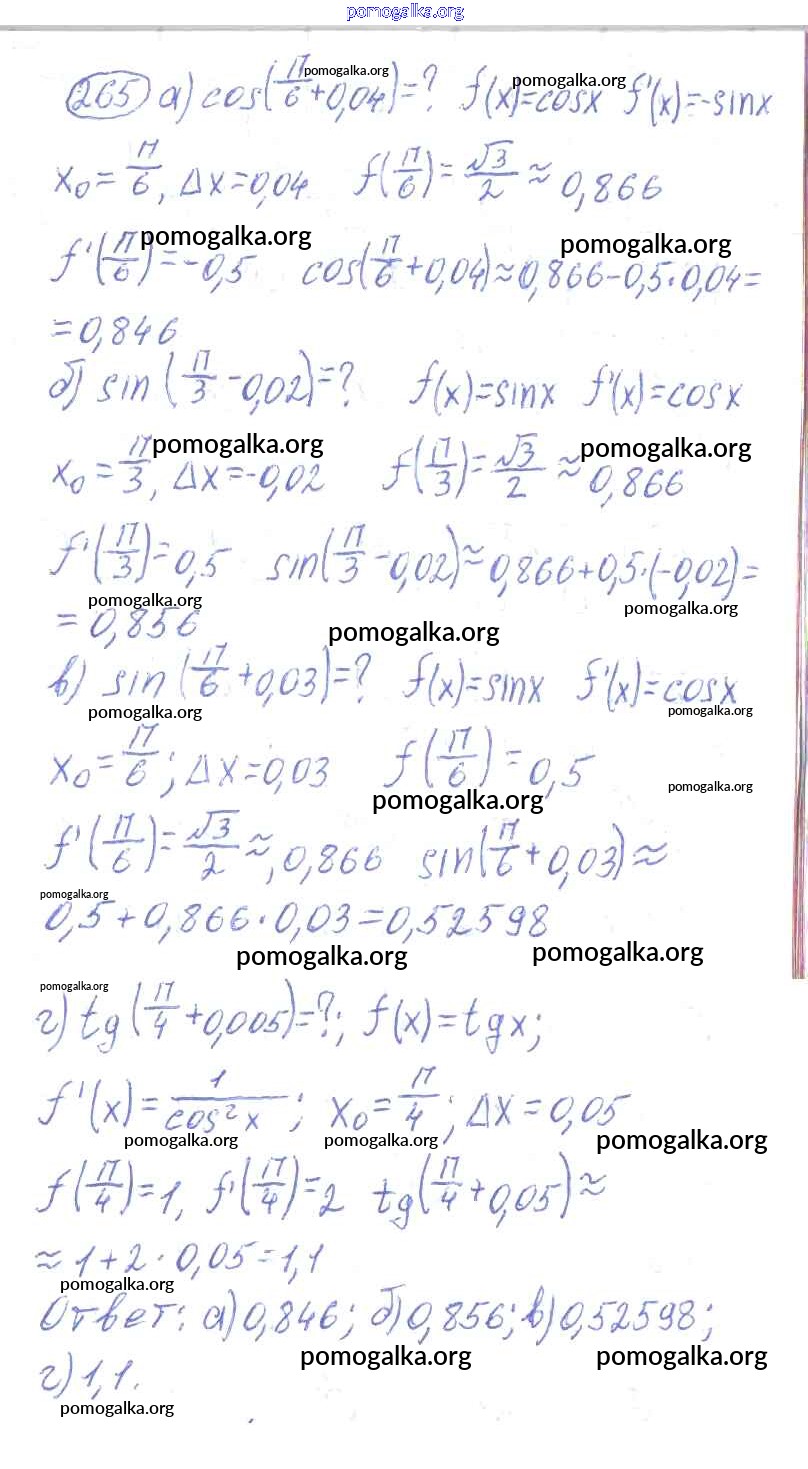 pomogalka.org
265 а) cos(π/6 + 0,04) = ? f(x) = cosx f'(x) = -sinx
pomogalka.org pomogalka.org
x₀ = π/6, Δx = 0,04 f(π/6) = √3/2 ≈ 0,866
pomogalka.org pomogalka.org
f'(π/6) = -0,5 cos(π/6 + 0,04) ≈ 0,866 - 0,5 · 0,04 =
= 0,846
б) sin(π/3 - 0,02) = ? f(x) = sinx f'(x) = cosx
pomogalka.org pomogalka.org
x₀ = π/3, Δx = -0,02 f(π/3) = √3/2 ≈ 0,866
f'(π/3) = 0,5 sin(π/3 - 0,02) ≈ 0,866 + 0,5 · (-0,02) =
pomogalka.org pomogalka.org
= 0,856
pomogalka.org
в) sin(π/6 + 0,03) = ? f(x) = sinx f'(x) = cosx
pomogalka.org pomogalka.org
x₀ = π/6; Δx = 0,03 f(π/6) = 0,5
pomogalka.org pomogalka.org
f'(π/6) = √3/2 ≈, 0,866 sin(π/6 + 0,03) ≈
pomogalka.org
0,5 + 0,866 · 0,03 = 0,52598
pomogalka.org pomogalka.org
pomogalka.org
г) tg(π/4 + 0,005) = ?; f(x) = tgx;
f'(x) = 1/cos²x; x₀ = π/4; Δx = 0,05
pomogalka.org pomogalka.org pomogalka.org
f(π/4) = 1, f'(π/4) = 2 tg(π/4 + 0,05) ≈
≈ 1 + 2 · 0,05 = 1,1
pomogalka.org
Ответ: а) 0,846; б) 0,856; в) 0,52598;
pomogalka.org pomogalka.org
г) 1,1.
pomogalka.org